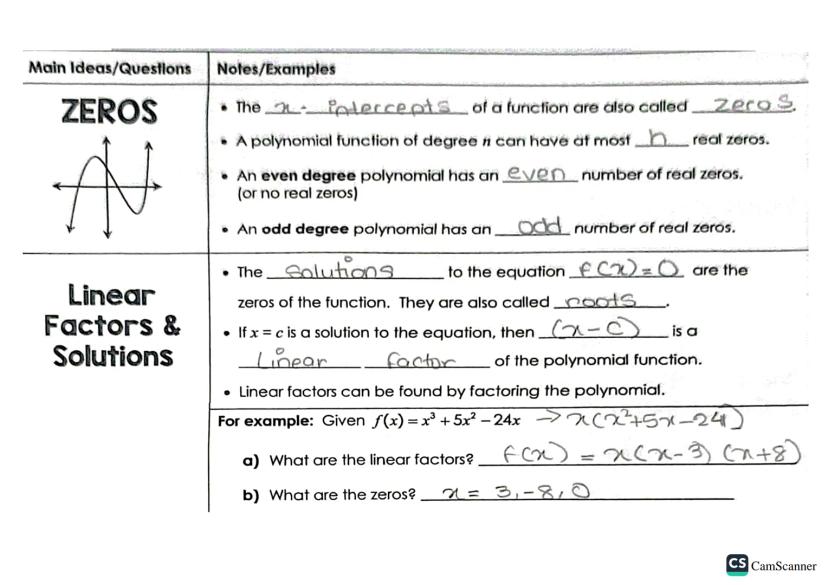 Main Ideas/Questions
Notes/Examples
ZEROS
• The x - intercepts of a function are also called zeros.
• A polynomial function of degree n can have at most n real zeros.
• An even degree polynomial has an even number of real zeros.
(or no real zeros)
• An odd degree polynomial has an odd number of real zeros.
Linear
Factors &
Solutions
• The solutions to the equation f(x)=0 are the
zeros of the function. They are also called roots.
• If x = c is a solution to the equation, then (x-c) is a
Linear factor of the polynomial function.
• Linear factors can be found by factoring the polynomial.
For example: Given f(x) = x³ + 5x² – 24x → x(x²+5x-24)
a) What are the linear factors? f(x) = x(x-3) (x+8)
b) What are the zeros? x = 3, -8, 0
CS CamScanner